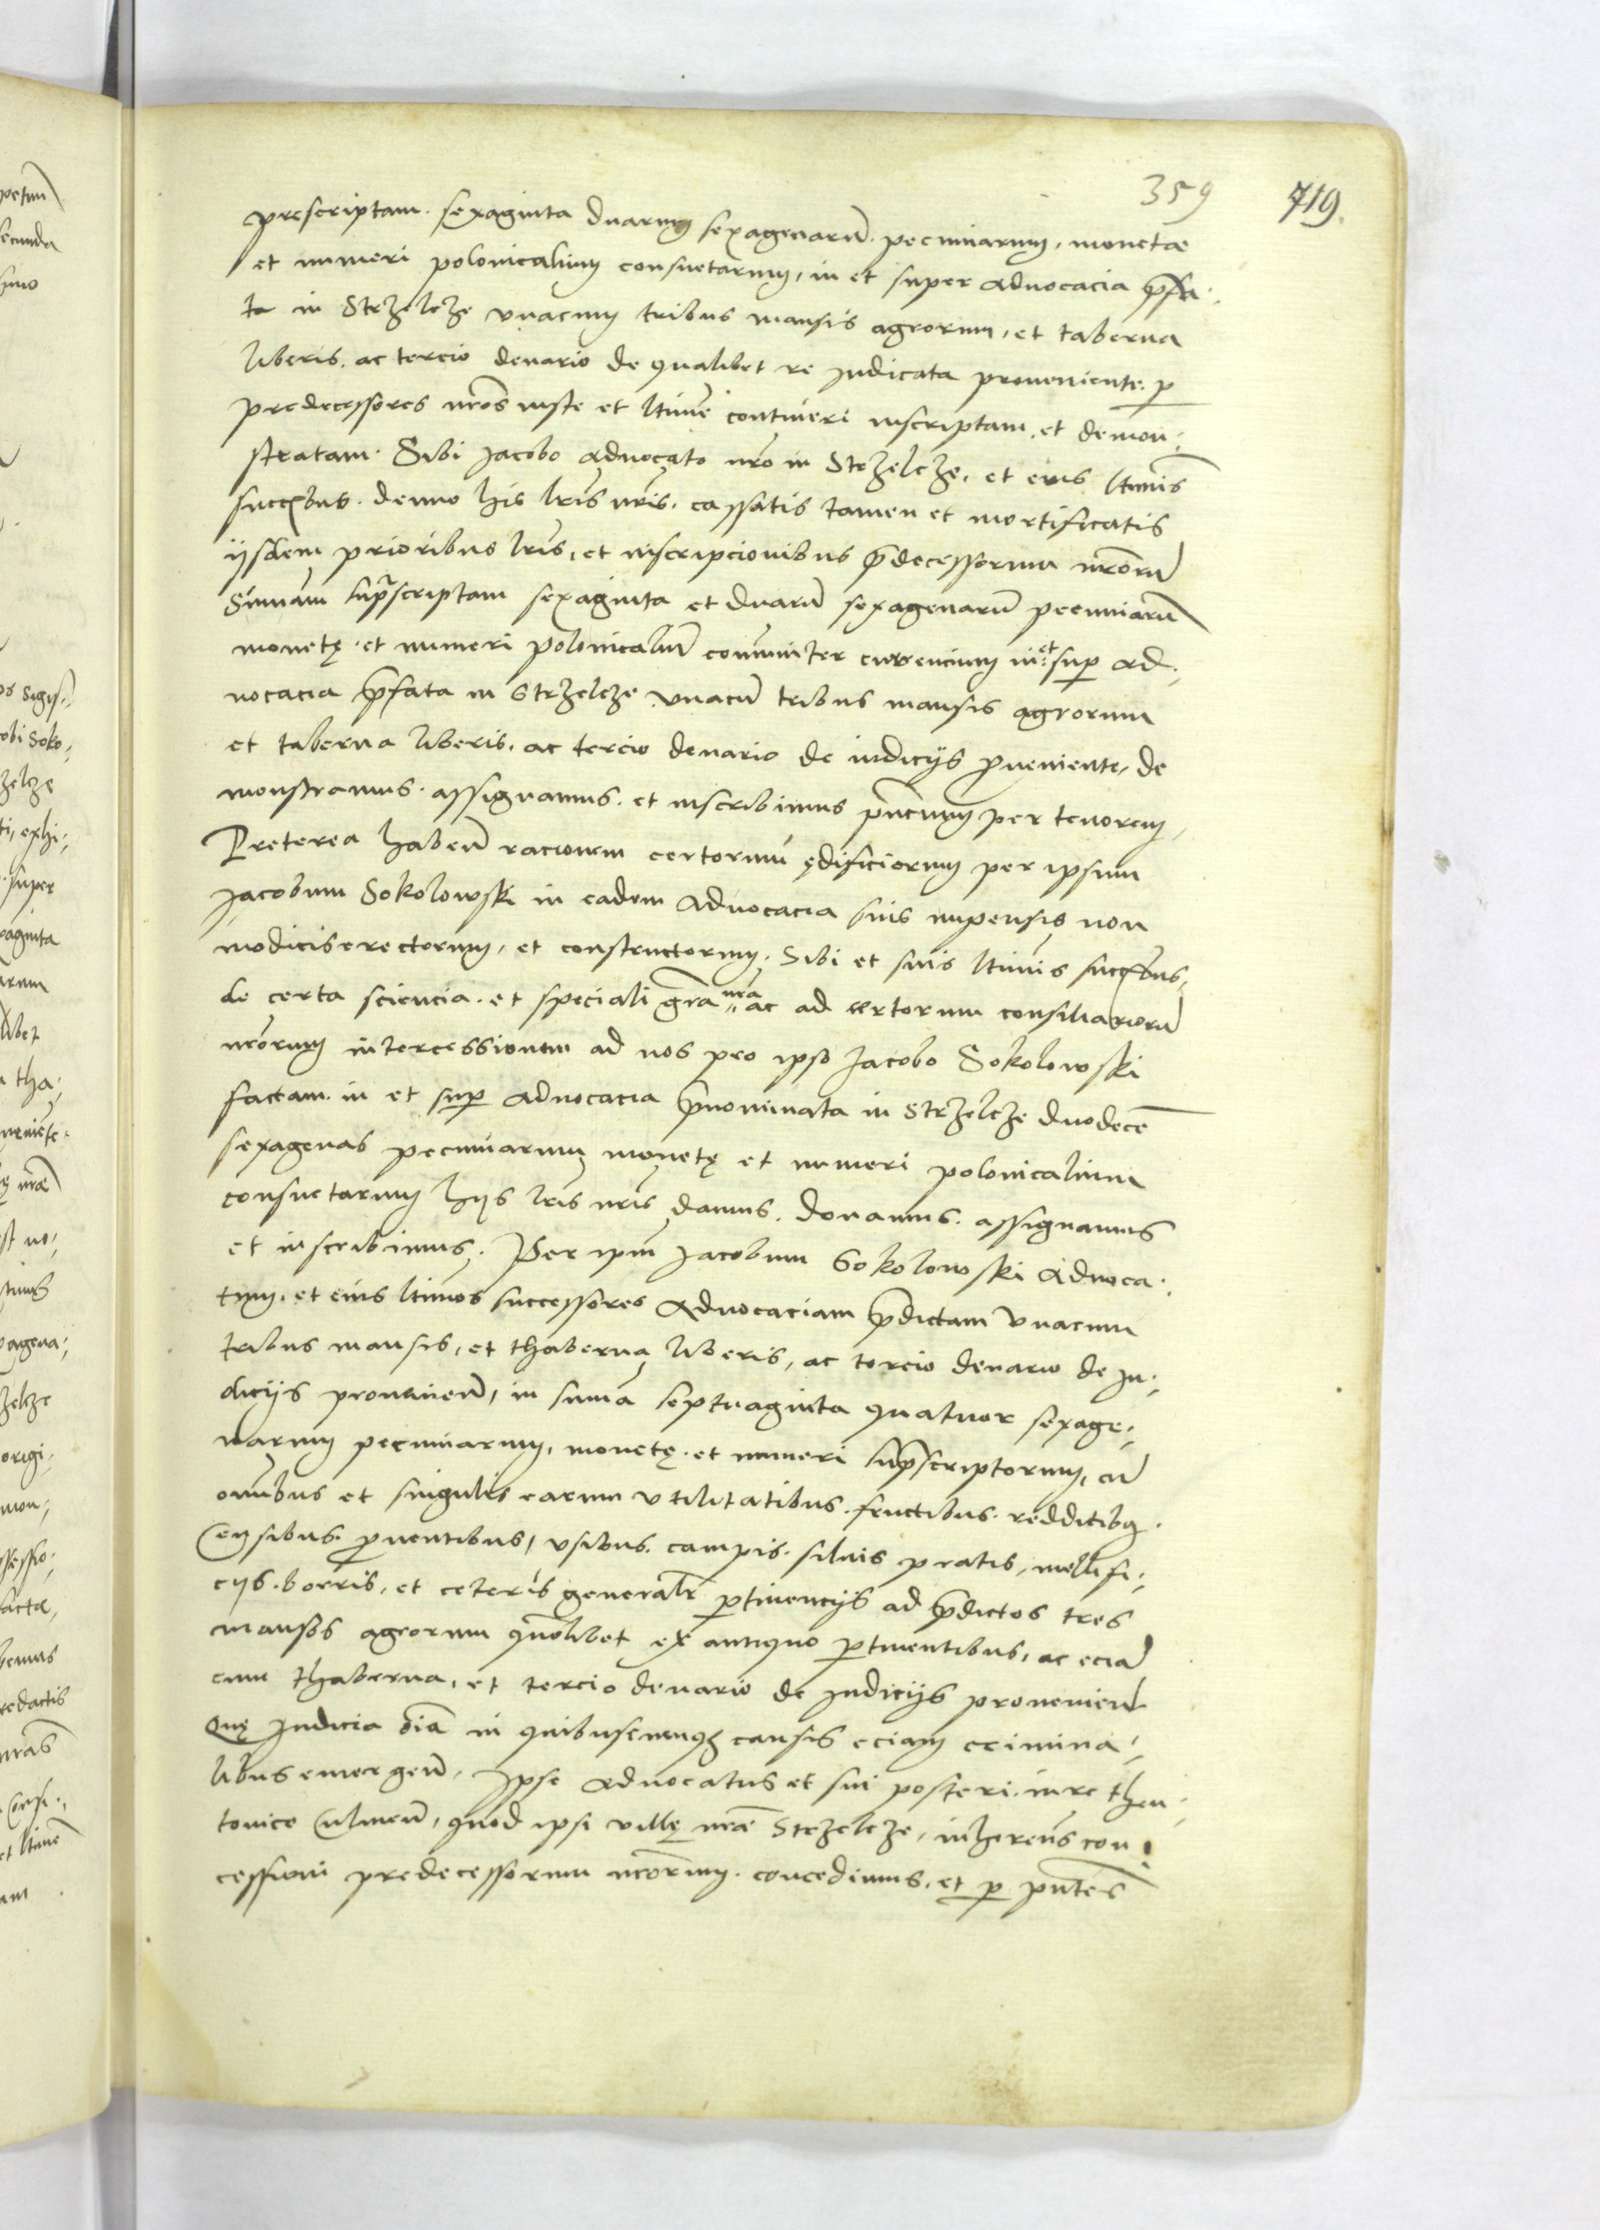 359 719.
prescriptam. sexaginta duarum sexagenarũ. pecuniarum, monetae
et numeri polonicalium consuetarum, in et super aduocacia p̃fa:
ta in Strzelcze vnacum tribus mansis agrorum, et taberna
liberis. ac tercio denario de qualibet re iudicata proueniente. p
predecessores nr̃os iuste et ltimẽ contineri inscriptam, et demon:
stratam. Sibi Jacobo aduocato nr̃o in Strzelcze, et eius ltimis
succ̃bus. denuo his lr̃is nr̃is. cassatis tamen et mortificatis
iisdem prioribus lr̃is, et inscripcionibus p̃decessorum nr̃orũ
Sum̃am sup̃scriptam sexaginta et duarũ sexagenarũ pecuniarũ
monetę. et numeri polonicaliũ com̃uniter currencium in et sup ad:
uocacia p̃fata in Strzelcze vnacũ tribus mansis agrorum
et taberna liberis. ac tercio denario de iudicijs p̃ueniente, de
monstramus. assignamus. et inscribimus pñcium per tenorem,
Preterea habeñ racionem certorum ędificiorum per ipsum
Jacobum Sokolowski in eadem aduocacia suis impensis non
modicis erectorum, et constructorum. Sibi et suis ltimis succ̃bus,
de certa sciencia. et speciali gr̃a nr̃a ac ad certorum consiliariorũ
nr̃orum intercessionem ad nos pro ipso Jacobo Sokolowski
factam. in et sup aduocacia p̃nominata in Strzelcze duodecẽ
sexagenas pecuniarum monetę et numeri polonicalium
consuetarum hijs lr̃is nr̃is damus. donamus. assignamus
et inscribimus. Per ipm̃ Jacobum Sokolowski aduoca:
tum. et eius ltimos successores aduocaciam p̃dictam vnacum
tribus mansis, et thaberna liberis, ac tercio denario de Ju:
dicijs proueñ, in sum̃a septuaginta quatuor sexage:
narum pecuniarum, monetę. et numeri sup̃scriptorum, cũ
om̃ibus et singulis earum vtilitatibus. fructibus. redditibq̃.
Censibus. p̃uentibus, vsibus. campis. siluis pratis, mellifi:
cijs. borris, et ceteris generalr̃ ptinencijs ad p̃dictos tres
mansos agrorum quõlibet ex antiquo ptinentibus, ac eciã
cum thaberna, et tercio denario de Judicijs prouenieñ
Quę Judicia oĩa in quibuscumq̃ causis eciam crimina:
libus emergeñ, Ipse aduocatus et sui posteri. iure theu:
tonico Culmeñ, quod ipsi villę nr̃ae Strzelcze, inherens con:
cessioni predecessorum nr̃orum. concedimus, et p pñtes